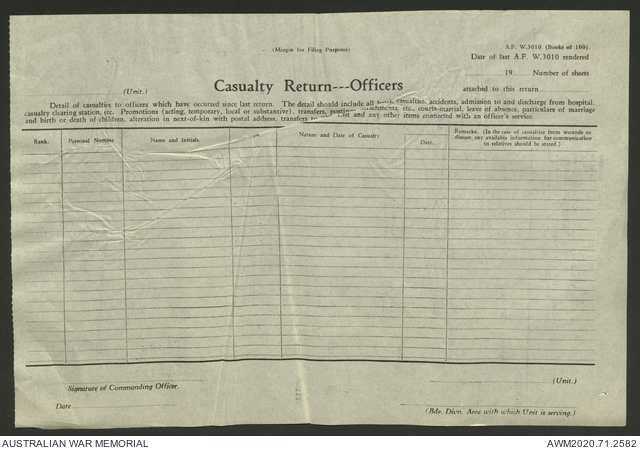 (Margin for Filing Purposes)
A.F. W.3010 (Books of 100).
Date of last A.F. W.3010 rendered
19 Number of sheets
(Unit.)
Casualty Return---Officers
attached to this return
Detail of casualties to officers which have occurred since last return. The detail should include all casualties, accidents, admission to and discharge from hospital,
casualty clearing station, etc. Promotions (acting, temporary, local or substantive), transfers, attachments, etc., courts-martial, leave of absence, particulars of marriage
and birth or death of children, alteration in next-of-kin with postal address, transfers to List and any other items connected with an officer's service.
Rank.
Personal Number.
Name and Initials.
Nature and Date of Casualty.
Date.
Remarks. (In the case of casualties from wounds or
disease, any available information for communication
to relatives should be stated.)
Signature of Commanding Officer.
(Unit.)
Date
(Bde. Divn. Area with which Unit is serving.)
AUSTRALIAN WAR MEMORIAL
AWM2020.71.2582